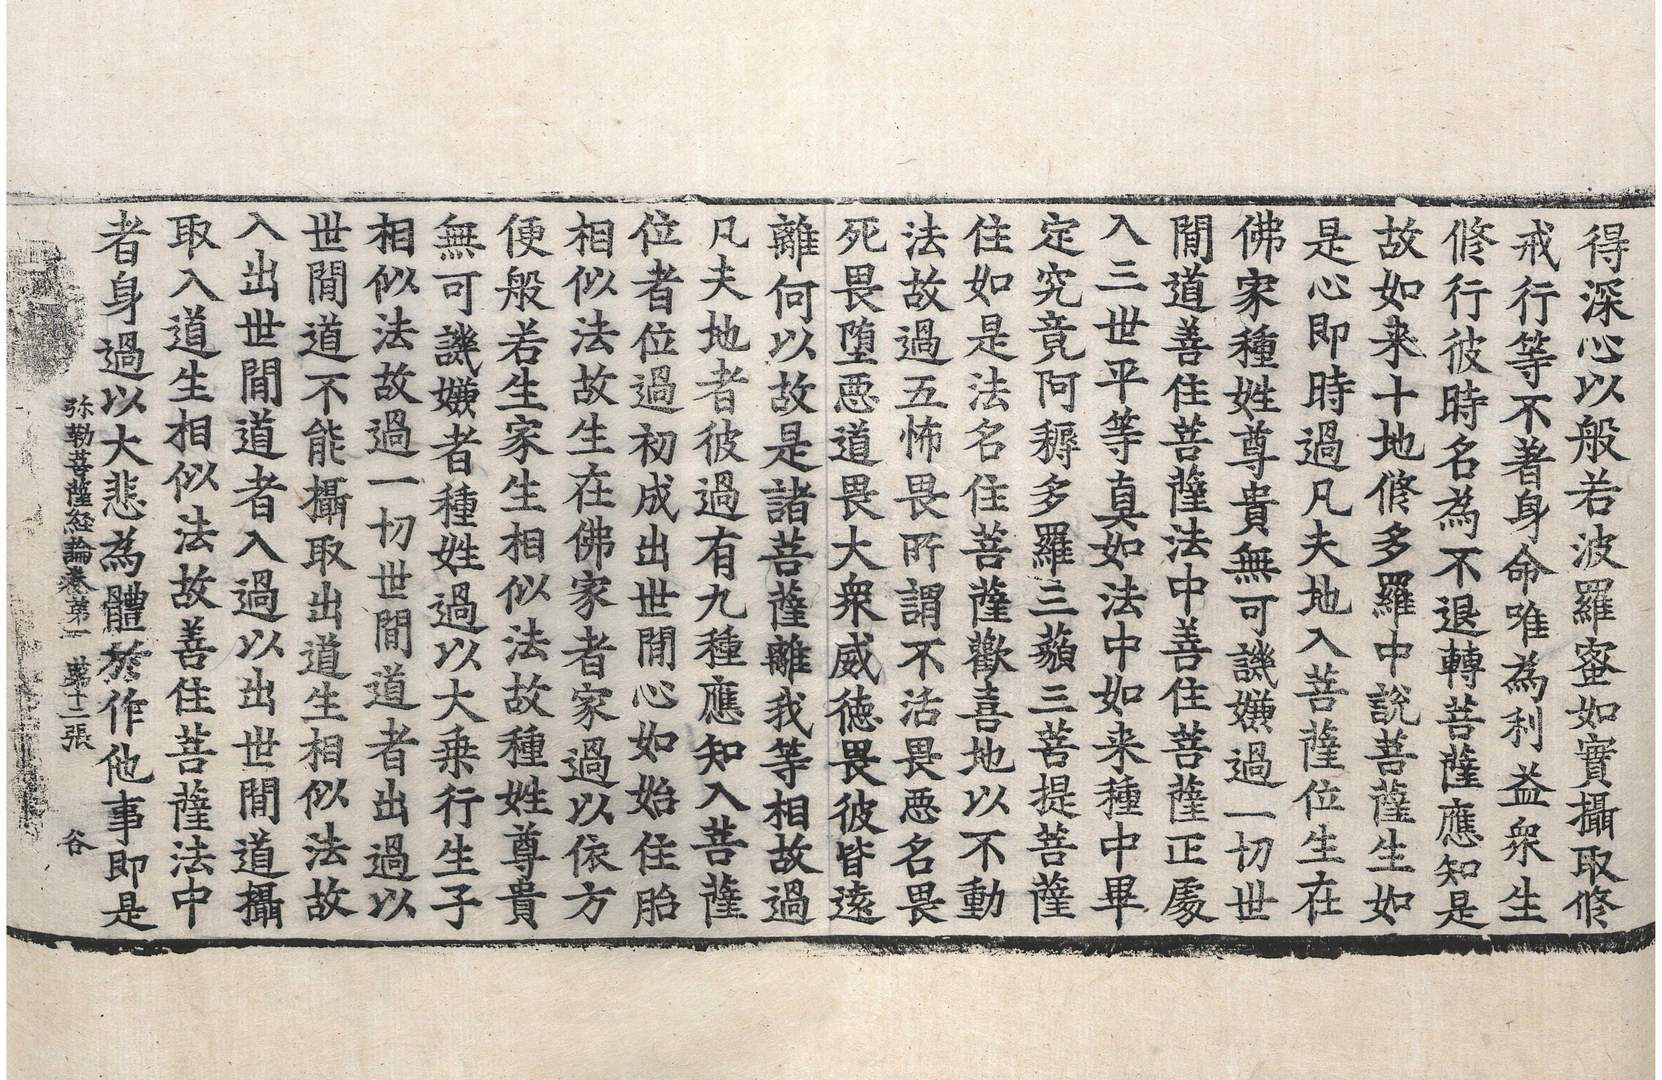 得深心以般若波羅蜜如實攝取修
戒行等不著身命唯為利益衆生
修行彼時名為不退轉菩薩應知是
故如来十地修多羅中說菩薩生如
是心即時過凡夫地入菩薩位生在
佛家種姓尊貴無可譏嫌過一切世
閒道善住菩薩法中善住菩薩正處
入三世平等真如法中如来種中畢
定究竟阿耨多羅三藐三菩提菩薩
住如是法名住菩薩歡喜地以不動
法故過五怖畏所謂不活畏惡名畏
死畏墮惡道畏大衆威德畏彼皆遠
離何以故是諸菩薩離我等相故過
凡夫地者彼過有九種應知入菩薩
位者位過初成出世閒心如始住胎
相似法故生在佛家者家過以依方
便般若生家生相似法故種姓尊貴
無可譏嫌者種姓過以大乗行生子
相似法故過一切世閒道者出過以
世閒道不能攝取出道生相似法故
入出世閒道者入過以出世閒道攝
取入道生相似法故善住菩薩法中
者身過以大悲為體於作他事即是
弥勒菩薩経論卷第一 第十二張 谷